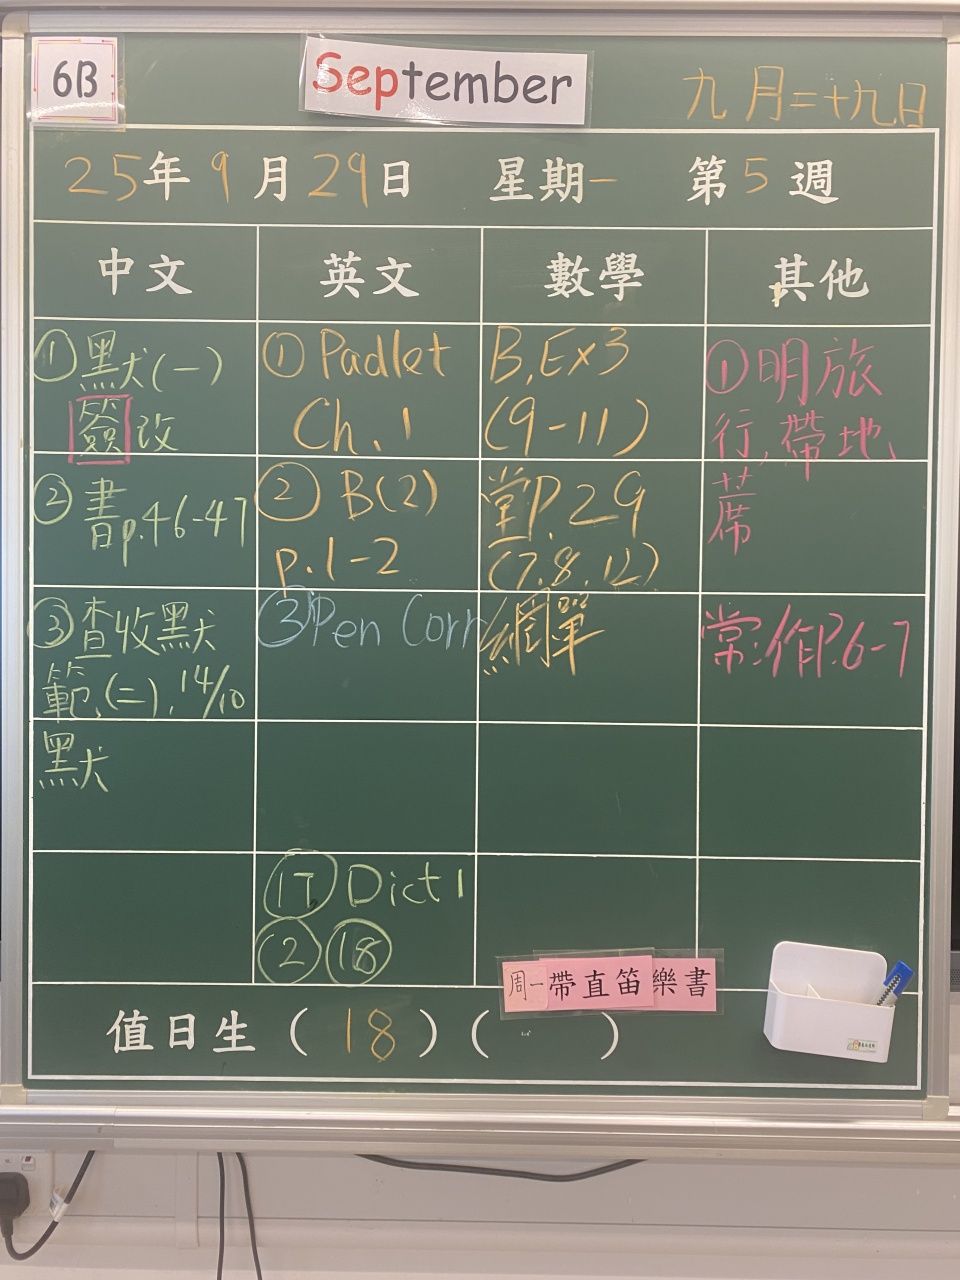 6B
September
九月二十九日
25年9月29日 星期一 第5週
中文 英文 數學 其他
①默(一)
簽改
②書p.46-47
③查收默
範,(二),14/10
默
①Padlet
Ch.1
②B(2)
p.1-2
③Pen Corr
17 Dict 1
2 18
B,Ex3
(9-11)
堂P.29
(7.8.12)
網單
①明旅
行,帶地
蓆
常:作P.6-7
周一帶直笛樂書
值日生(18)( )